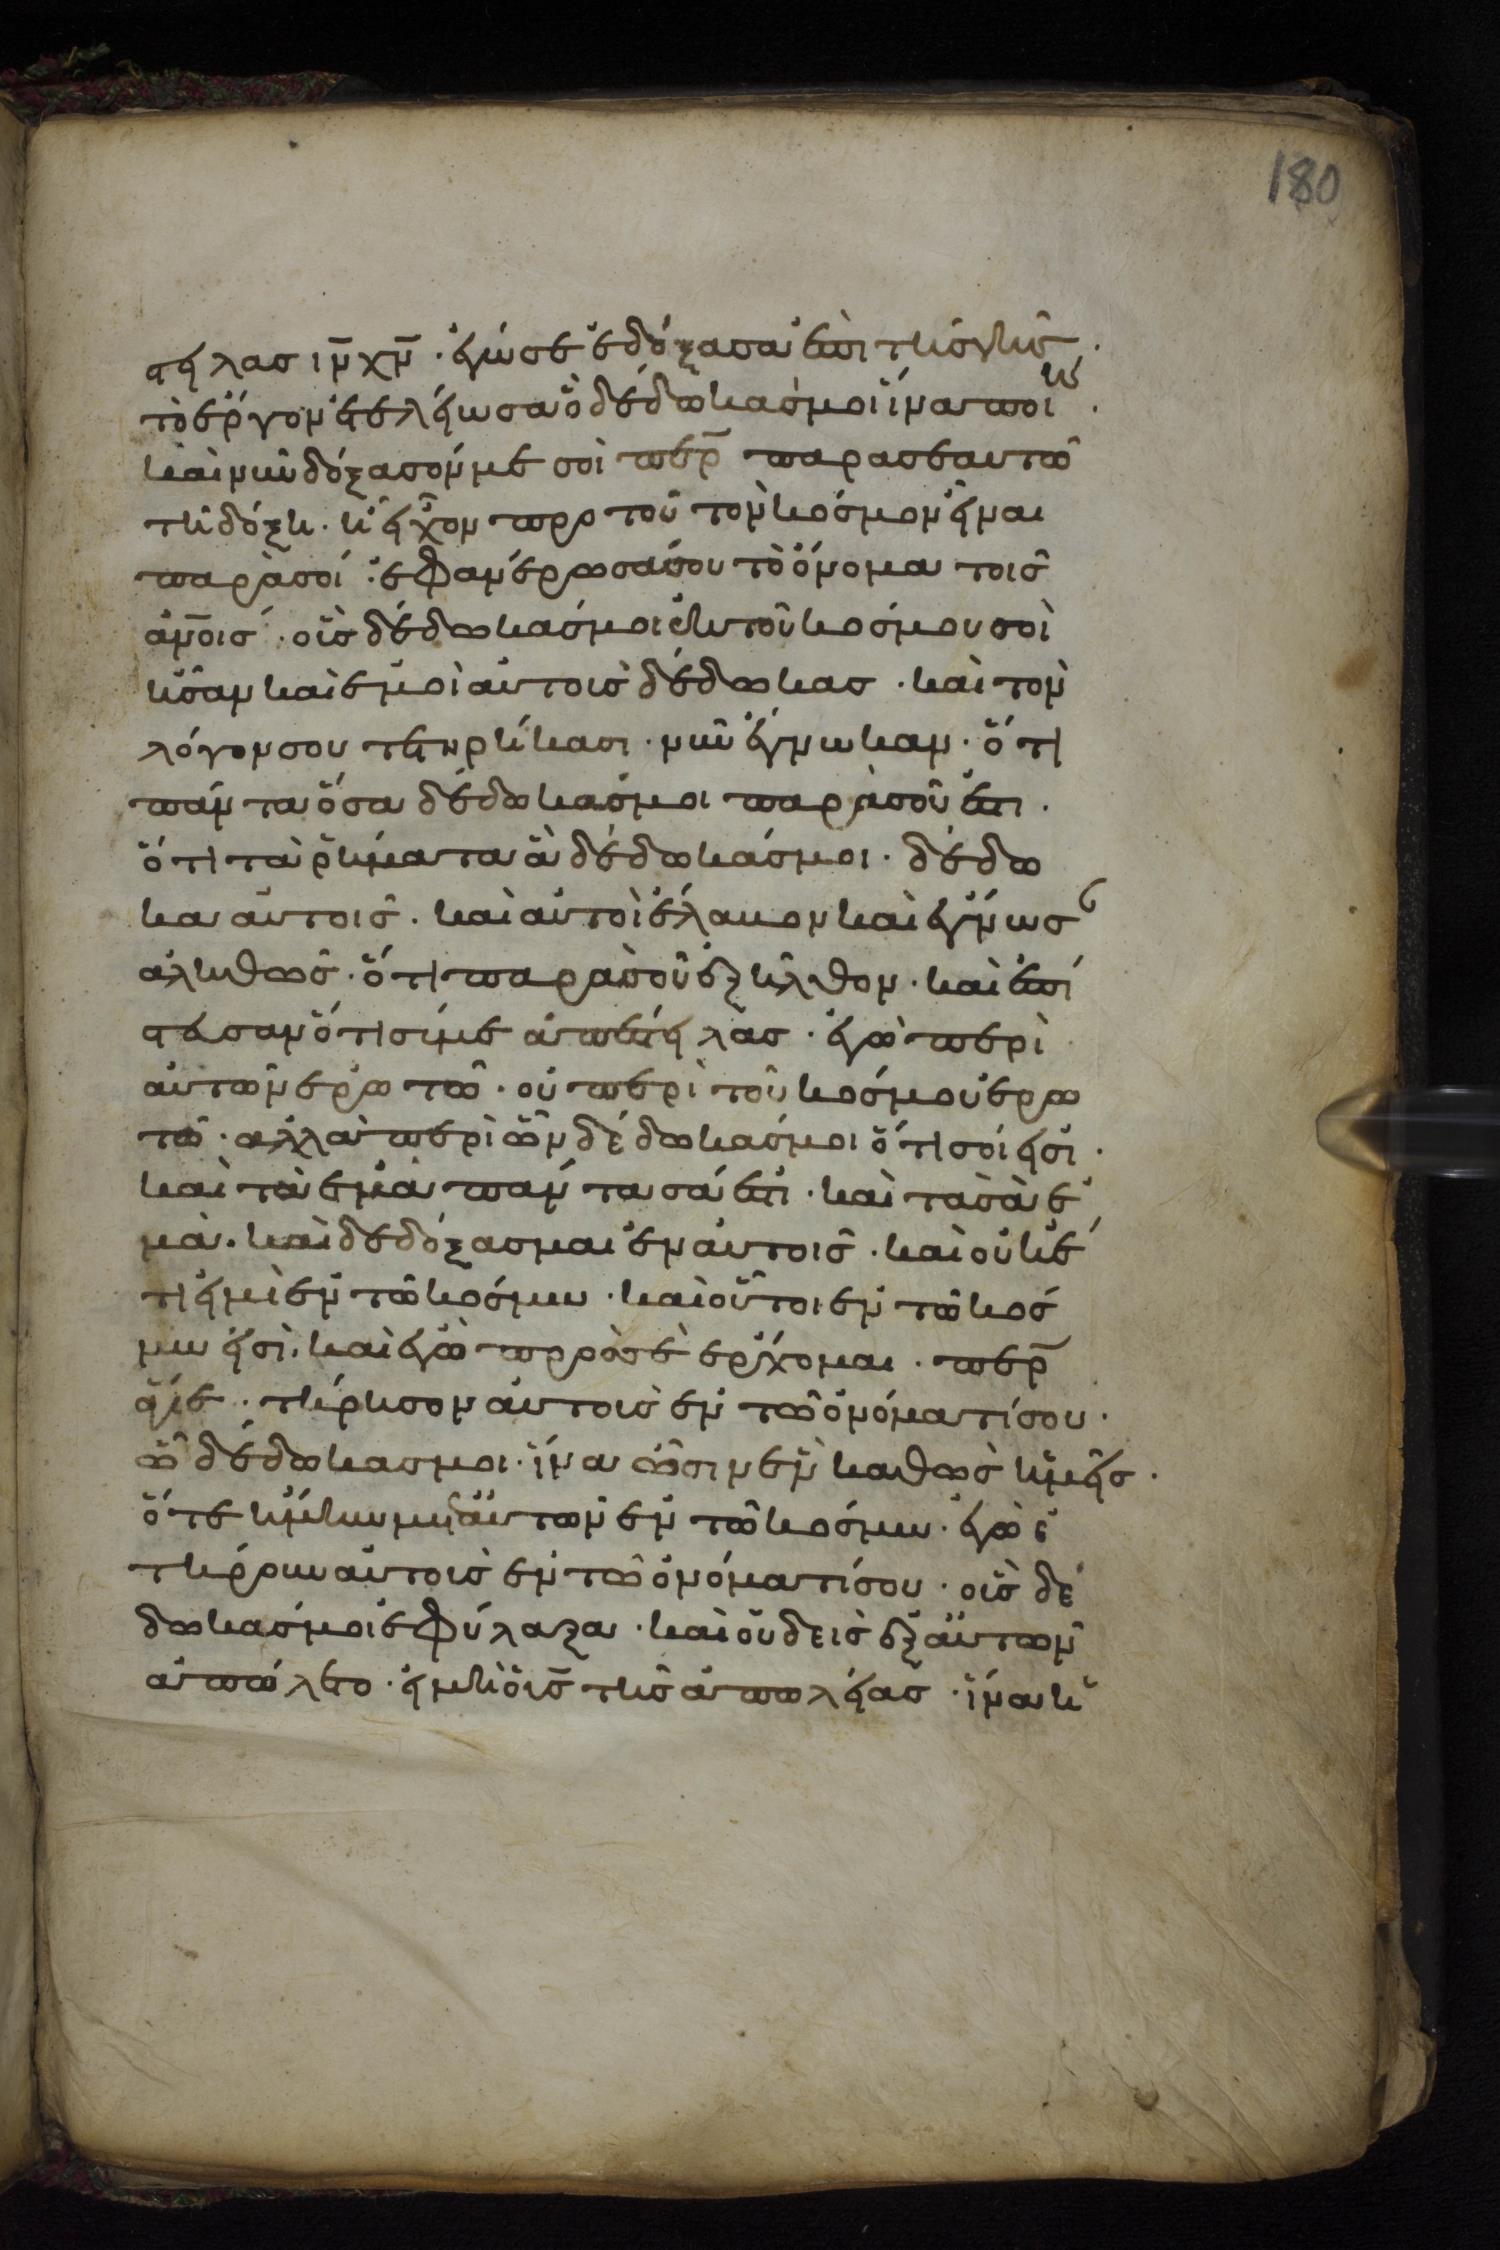 180
στειλας ιν̅ χν̅ · ἐγώ σε ἐδόξασα ἐπὶ τῆσ γῆσ ·
τὸ ἔργον ἐτελείωσα ὃ δέδωκάσ μοι ἵνα ποιήσω ·
καὶ νῦν δόξασόν με σοὶ περ̅ παρα σεαυτῶ
τῆ δόξη · ἧ εἶχον προ τοῦ τὸν κόσμον εἶναι
παρὰ σοί · ἐφανέρωσά σου τὸ ὄνομα τοῖσ
ἀνοισ̅ · οἷσ δέδωκάσ μοι ἐκ τοῦ κόσμου σοὶ
ἦσαν καὶ ἐμοὶ αὐτοὶσ δέδωκασ · καὶ τὸν
λόγον σου τετηρήκασι · νῦν ἔγνωκαν · ὅτι
πάντα ὅσα δέδωκάσ μοι παρὰ σοῦ ἐστι ·
ὅτι τὰ ρήματα ἃ δέδωκάσ μοι · δέδω
κα αὐτοῖσ · καὶ αὐτοὶ ἔλαβον καὶ ἔγνωσ
ἀληθῶσ · ὅτι παρὰ σοῦ ἐξῆλθον · καὶ ἐπί
στευσαν ὅτι σύ με ἀπέστειλασ · ἐγὼ περὶ
αὐτῶν ἐρωτῶ · οὐ περὶ τοῦ κόσμου ἐρω
τῶ · ἀλλὰ περὶ ὧν δέδωκάσ μοι ὅτι σοί εἰσι ·
καὶ τὰ ἐμὰ πάντα σά ἐστι · καὶ τὰ σὰ ἐ
μὰ · καὶ δεδόξασμαι ἐν αὐτοῖσ · καὶ οὐκ ἔ
τι εἰμὶ ἐν τῶ κόσμω · καὶ οὗτοι ἐν τῶ κόσ
μω εἰσὶ · καὶ ἐγὼ πρὸσ σὲ ἔρχομαι · περ̅
ἅγιε · τήρησον αὐτοὺσ ἐν τῶ ὀνόματί σου ·
ὧ δέδωκασ μοι · ἵνα ὦσιν ἓν καθὼσ ἡμεῖσ ·
ὅτε ἤμην μετ αὐτῶν ἐν τῶ κόσμω · ἐγὼ ἐ
τήρουν αὐτοὺσ ἐν τῶ ὀνόματί σου · οὓσ δέ
δωκάσ μοι ἐφύλαξα · καὶ οὐδεὶσ ἐξ αὐτῶν
ἀπώλετο · εἰ μὴ ὁ υἱσ̅ τῆσ ἀπωλείασ · ἵνα ἡ